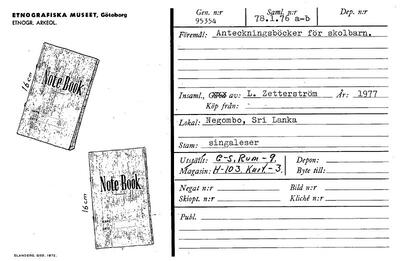 ETNOGRAFISKA MUSEET, Göteborg
ETNOGR. ARKEOL.
16cm
Note Book
Note Book
16cm
ELANDERS, GBG. 1972.
Gen. n:r
95354
Saml. n:r
78.1.76 a-b
Dep. n:r
Föremål: Anteckningsböcker för skolbarn.
Insaml., av: L. Zetterström År: 1977
Köp från:
Lokal: Negombo, Sri Lanka
Stam: singaleser
Utställt: C-5, Rum-9. Depon:
Magasin: H-103. Kart.-3. Byte till:
Negat n:r Bild n:r
Skiopt. n:r Kliché n:r
Publ.